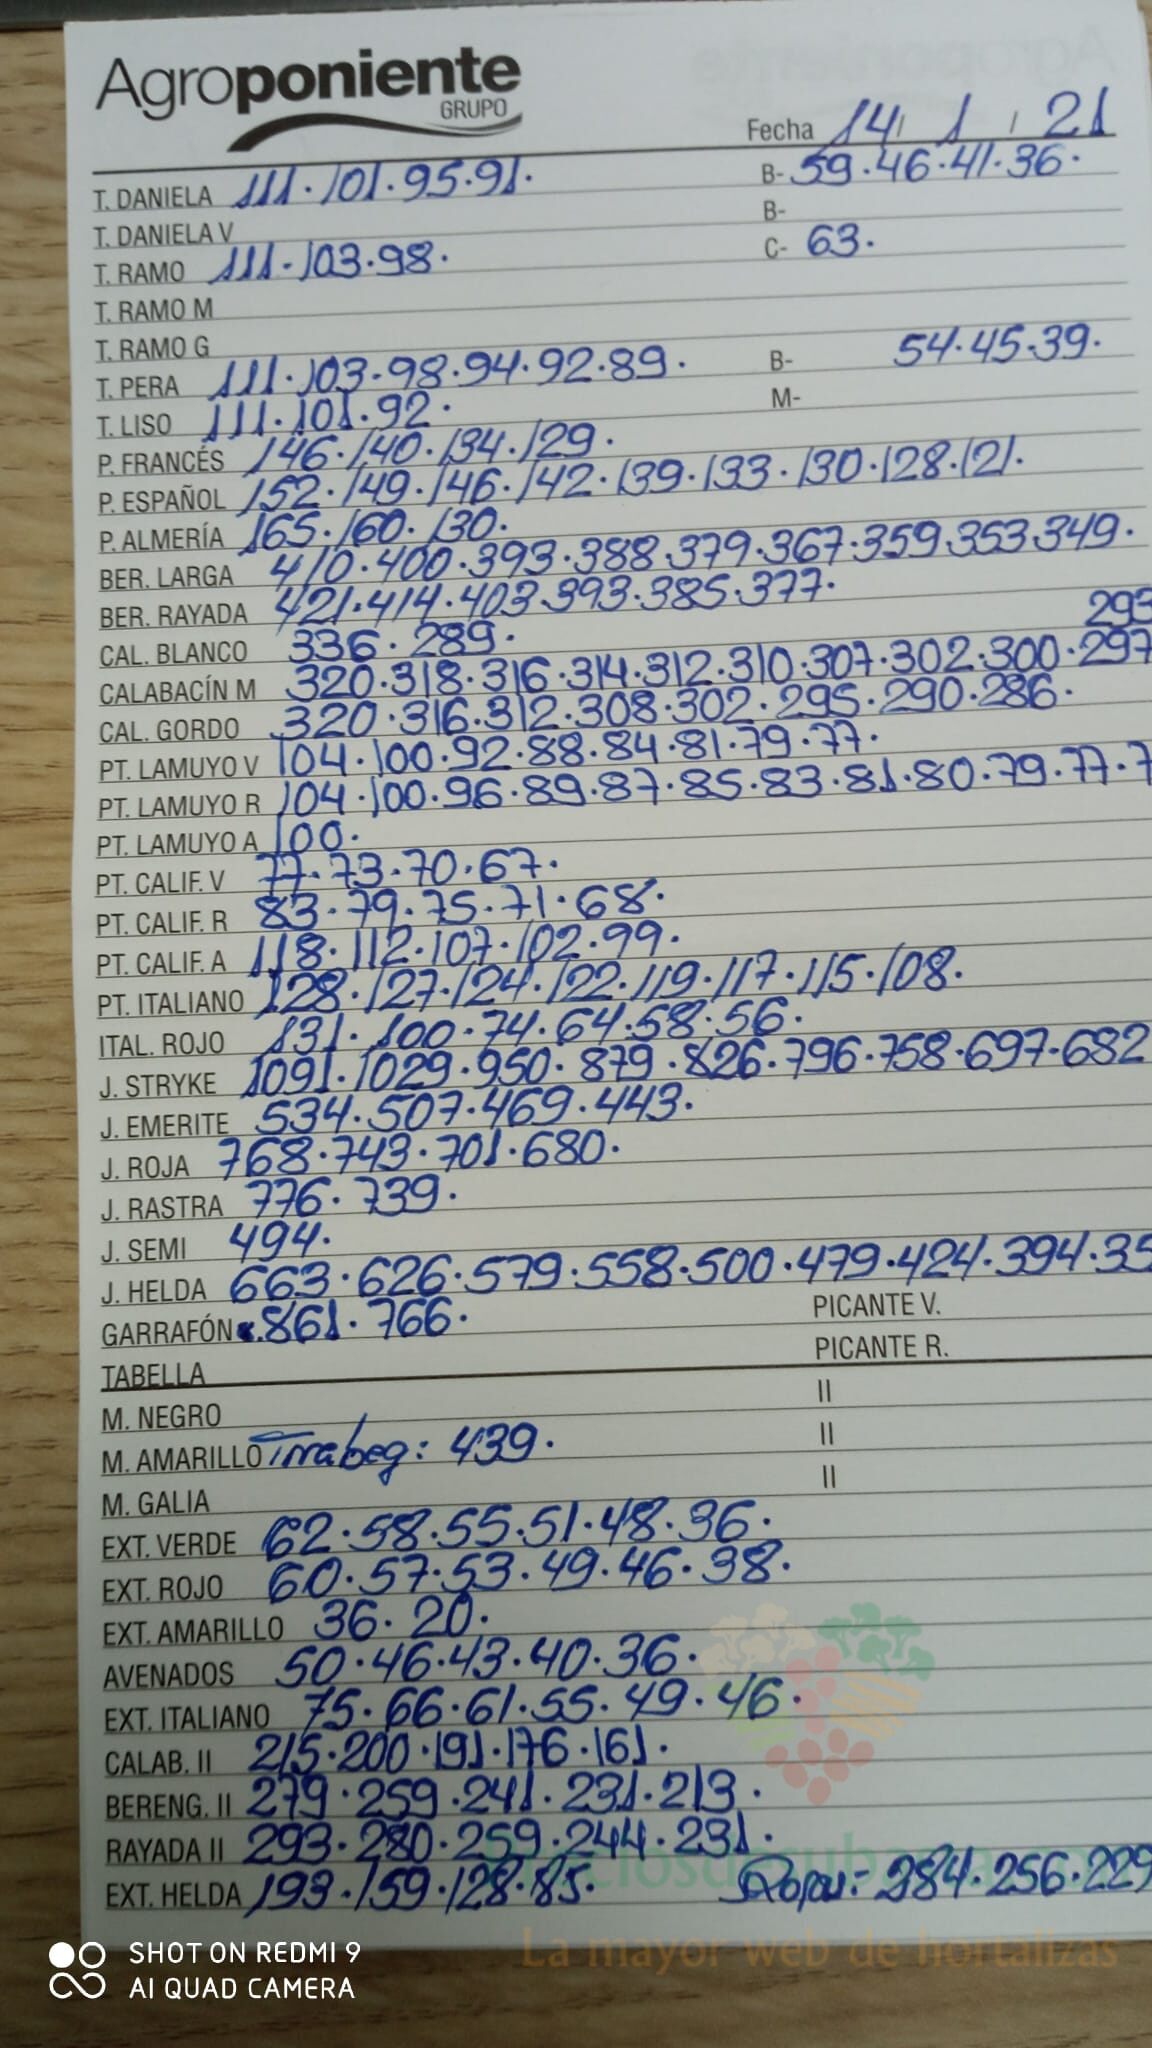 Agroponiente
GRUPO
Fecha 14 / 1 / 21
T. DANIELA 111. 101. 95. 91. B- 59. 46. 41. 36.
T. DANIELA V B-
T. RAMO 111. 103. 98. C- 63.
T. RAMO M
T. RAMO G
T. PERA 111. 103. 98. 94. 92. 89. B- 54. 45. 39.
T. LISO 111. 101. 92. M-
P. FRANCÉS 146. 140. 134. 129.
P. ESPAÑOL 152. 149. 146. 142. 139. 133. 130. 128. 121.
P. ALMERÍA 165. 160. 130.
BER. LARGA 410. 400. 393. 388. 379. 367. 359. 353. 349.
BER. RAYADA 421. 414. 403. 393. 385. 377.
CAL. BLANCO 336. 289. 293
CALABACÍN M 320. 318. 316. 314. 312. 310. 307. 302. 300. 297
CAL. GORDO 320. 316. 312. 308. 302. 295. 290. 286.
PT. LAMUYO V 104. 100. 92. 88. 84. 81. 79. 77.
PT. LAMUYO R 104. 100. 96. 89. 87. 85. 83. 81. 80. 79. 77. 7
PT. LAMUYO A 100.
PT. CALIF. V 77. 73. 70. 67.
PT. CALIF. R 83. 79. 75. 71. 68.
PT. CALIF. A 118. 112. 107. 102. 99.
PT. ITALIANO 128. 127. 124. 122. 119. 117. 115. 108.
ITAL. ROJO 131. 100. 74. 64. 58. 56.
J. STRYKE 1091. 1029. 950. 879. 826. 796. 758. 697. 682
J. EMERITE 534. 507. 469. 443.
J. ROJA 768. 743. 701. 680.
J. RASTRA 776. 739.
J. SEMI 494.
J. HELDA 663. 626. 579. 558. 500. 479. 424. 394. 35
GARRAFÓN 861. 766. PICANTE V.
TABELLA PICANTE R.
M. NEGRO II
M. AMARILLO Trrabeg: 439. II
M. GALIA II
EXT. VERDE 62. 58. 55. 51. 48. 36.
EXT. ROJO 60. 57. 53. 49. 46. 38.
EXT. AMARILLO 36. 20.
AVENADOS 50. 46. 43. 40. 36.
EXT. ITALIANO 75. 66. 61. 55. 49. 46.
CALAB. II 215. 200. 191. 176. 161.
BERENG. II 279. 259. 241. 231. 213.
RAYADA II 293. 280. 259. 244. 231.
EXT. HELDA 193. 159. 128. 85. 284. 256. 229
La mayor web de hortalizas
SHOT ON REDMI 9
AI QUAD CAMERA